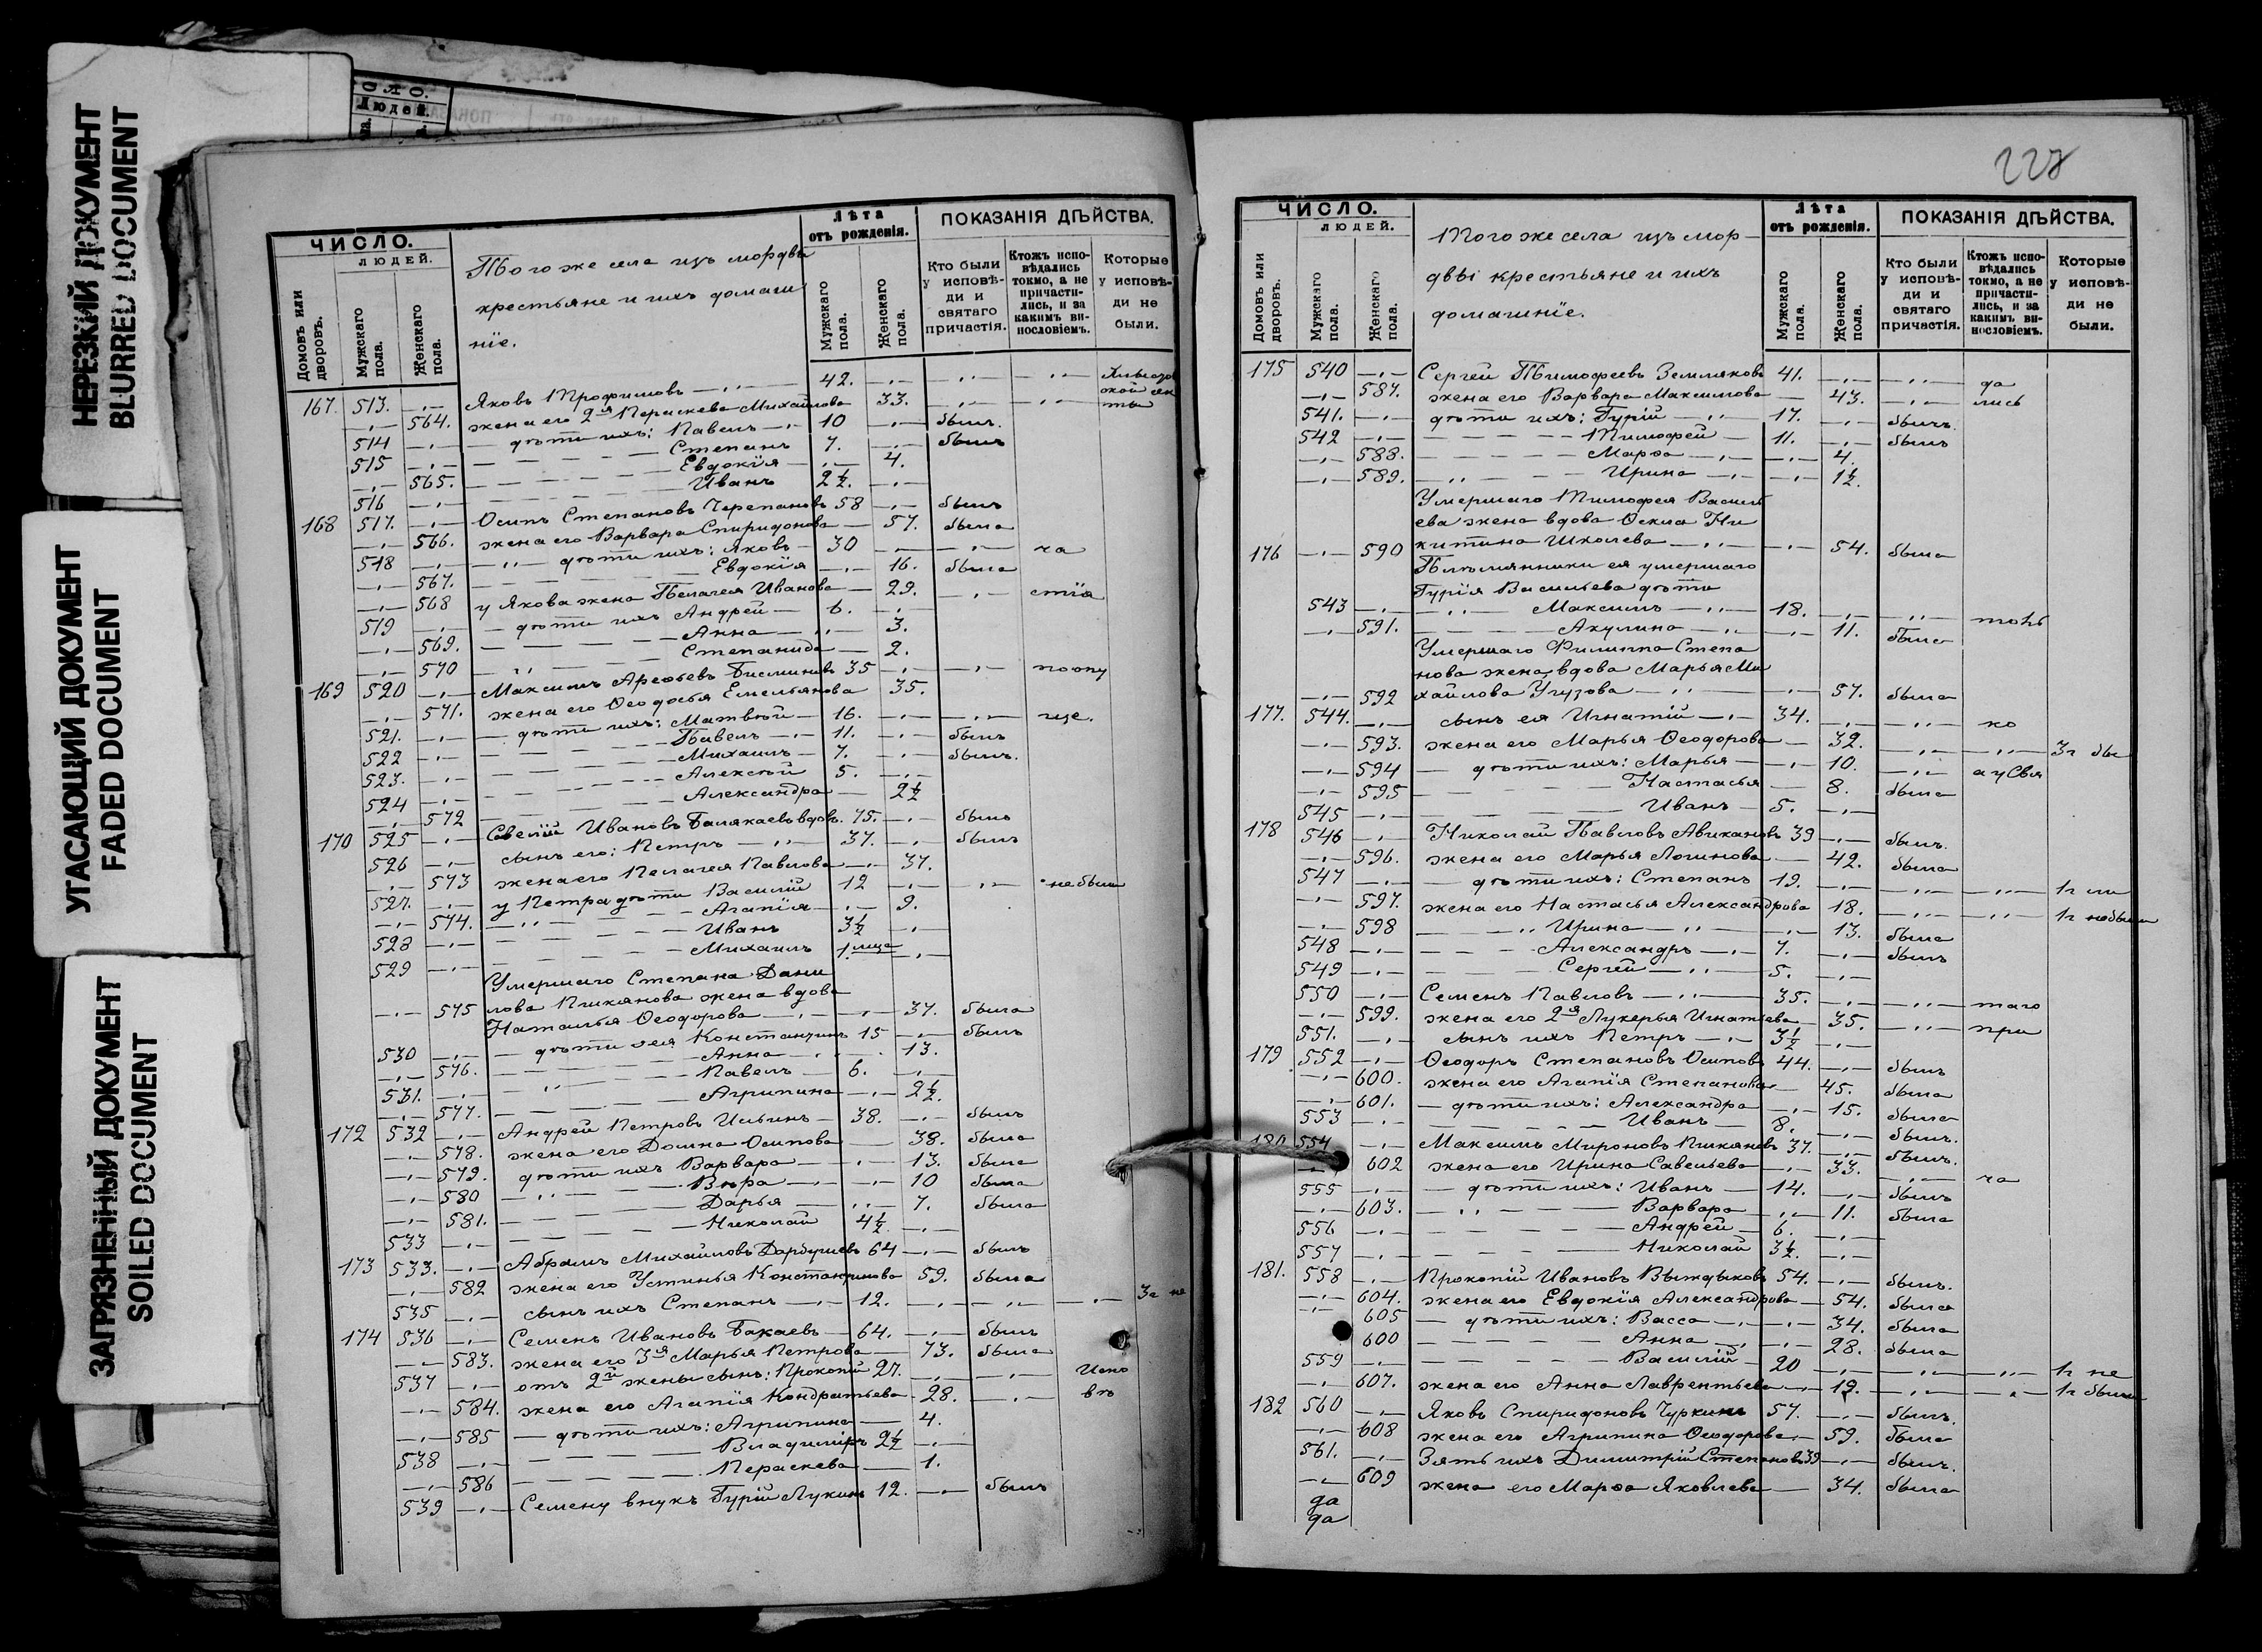 НЕРЕЗКИЙ ДОКУМЕНТ
BLURRED DOCUMENT
УГАСАЮЩИЙ ДОКУМЕНТ
FADED DOCUMENT
ЗАГРЯЗНЕННЫЙ ДОКУМЕНТ
SOILED DOCUMENT
Людей.
ЧИСЛО.
ЛЮДЕЙ.
Домовъ или дворовъ.
Мужскаго пола.
Женскаго пола.
Того же села изъ мордвы
крестьяне и ихъ домаш
ніе.
Лѣта
отъ рожденія.
Мужскаго пола.
Женскаго пола.
ПОКАЗАНІЯ ДѢЙСТВА.
Кто были у исповѣ-ди и святаго причастія.
Ктожъ испо-вѣдались токмо, а не причасти-лись, и за какимъ ви-нословіемъ.
Которые у исповѣ-ди не были.
167. 513. —„— Яковъ Трофимовъ —„— 42. —„— —„— —„—
—„— 564. жена его 2я Параскева Михайлова 33. —„— —„—
514 —„— — дѣти ихъ: Павелъ —„— 10 —„— былъ.
515 —„— Степанъ 7. —„— былъ
—„— 565. Евдокія —„— 4.
516 —„— Иванъ 2½. —„—
168 517. —„— Осипъ Степановъ Черепановъ 58 —„— былъ
—„— 566. жена его Варвара Спиридонова — 57. была
518 —„— —„— дѣти ихъ: Яковъ — 30 —„— —„— ча
—„— 567. Евдокія —„— 16. была
—„— 568 у Якова жена Пелагея Иванова — 29. —„— стія
519 —„— — дѣти ихъ Андрей — 6. —„—
—„— 569. Анна —„— 3.
—„— 570 Степанида — 2.
169 520 —„— Максимъ Арефьевъ 35 —„— —„— по опу
—„— 571. жена его Ѳеодосья Емельянова 35.
521. —„— — дѣти ихъ: Матвѣй — 16. —„— —„— ще.
522 —„— Павелъ —„— 11. —„— былъ
523. —„— Михаилъ — 7. —„— былъ.
524 —„— Алексѣй 5. —„—
—„— 572 Александра — 2½
170 525 —„— Савелій Ивановъ Балакаевъ вдов. 75. —„— былъ
526 —„— сынъ его: Петръ —„— 37. —„— былъ
—„— 573 жена его Пелагея Павлова —„— 37.
527. —„— у Петра дѣти Василій 12 —„— —„— не были
—„— 574. Агапія —„— 9.
528 —„— Иванъ 3½ —„—
529 —„— Михаилъ —„—
Умершаго Степана Дани
лова Пиканова жена вдова
—„— 575 Наталья Ѳеодорова —„— —„— 37. была
530 —„— — дѣти ея Константинъ 15 —„— былъ
—„— 576. Анна —„— 13.
531. —„— Павелъ — 6. —„—
—„— 577. Агрипина —„— 2½.
172 532 —„— Андрей Петровъ Ильинъ — 38. —„— былъ
—„— 578. жена его Домна Осипова — 38. была
—„— 579. дѣти ихъ Варвара —„— 13. была
—„— 580 Вѣра —„— —„— 10 была
—„— 581. Дарья — —„— 7. была
533 —„— Николай 4½. —„—
173 533. —„— Абрамъ Михайловъ 64 —„— былъ
—„— 582 жена его Устинья Константинова 59. была
535 —„— сынъ ихъ Степанъ —„— 12. —„— —„— —„— 3г не
174 536 —„— Семенъ Ивановъ Бакаевъ 64. —„— былъ
—„— 583. жена его 3я Марья Петрова — 73. была
537 —„— отъ 2й жены сынъ: Прокопій 27. —„— —„— Испо
—„— 584. жена его Агапія Кондратьева 28. —„— вѣ
—„— 585 — дѣти ихъ: Агрипина — 4.
538 —„— Владиміръ 2½ —„—
—„— 586 Параскева — 1.
539 —„— Семену внукъ Гурій Лукинъ 12. —„— былъ
ЧИСЛО.
ЛЮДЕЙ.
Домовъ или дворовъ.
Мужскаго пола.
Женскаго пола.
Того же села изъ мор-
двы крестьяне и ихъ
домашніе.
Лѣта
отъ рожденія.
Мужскаго пола.
Женскаго пола.
ПОКАЗАНІЯ ДѢЙСТВА.
Кто были у исповѣ-ди и святаго причастія.
Ктожъ испо-вѣдались токмо, а не причасти-лись, и за какимъ ви-нословіемъ.
Которые у исповѣ-ди не были.
175 540 —„— Сергей Тимофеевъ Земляковъ 41. —„— —„— да
—„— 587. жена его Варвара Максимова — 43. —„— лись
541. —„— дѣти ихъ: Гурій —„— 17. —„— былъ.
542 —„— Тимофей — 11. —„— былъ
—„— 588. Марѳа —„— —„— 4.
—„— 589. Ирина —„— —„— 1½.
Умершаго Тимофея Васил
ева жена вдова Ѳекла Ни
176 —„— 590 китина Школева —„— —„— 54. была
Племянники ея умершаго
Гурія Васильева дѣти
543 —„— —„— Максимъ —„— 18. —„— —„— токъ
—„— 591. Акулина —„— —„— 11. была
Умершаго Филиппа Степа
нова жена вдова Марья Ми
—„— 592 хайлова Угузова —„— —„— 57. была
177. 544. —„— сынъ ея Игнатій —„— 34. —„— —„— ко
—„— 593. жена его Марья Ѳеодорова — 32. —„— —„— 3г бы
—„— 594 — дѣти ихъ: Марья — —„— 10. —„— а у Свя
—„— 595 Настасья — 8. была
545 —„— Иванъ — 5. —„—
178 546 —„— Николай Павловъ Авикановъ 39 —„— былъ.
—„— 596. жена его Марья Логинова — 42. была
547 —„— — дѣти ихъ: Степанъ 19. —„— —„— —„— 1г ли
—„— 597. жена его Настасья Александрова 18. —„— —„— 1г не были
—„— 598 Ирина —„— —„— 13. была
548 —„— Александръ —„— 7. —„— былъ
549 —„— Сергей —„— 5. —„—
550 —„— Семенъ Павловъ —„— 35. —„— —„— таго
—„— 599. жена его 2я Лукерья Игнатьева 35. —„— при
551. —„— сынъ ихъ Петръ —„— 3½ —„—
179 552 —„— Ѳеодоръ Степановъ Осиповъ 44. —„— былъ
—„— 600. жена его Агапія Степанова 45. была
—„— 601. — дѣти ихъ: Александра —„— 15. была
553 —„— Иванъ — 8. —„— былъ.
180 554 —„— Максимъ Мироновъ Пикановъ 37. —„— былъ.
—„— 602 жена его Ирина Савельева —„— 33. —„— ча
555 —„— — дѣти ихъ: Иванъ — 14. —„— былъ
—„— 603. Варвара —„— 11. была
556 —„— Андрей — 6. —„—
557 —„— Николай 3½. —„—
181. 558 —„— Прокопій Ивановъ 54. —„— былъ.
—„— 604. жена его Евдокія Александрова 54. была
—„— 605 — дѣти ихъ: Васса —„— —„— 34. была
600 Анна —„— —„— 28. была
559 —„— Василій — 20 —„— —„— —„— 1г не
—„— 607. жена его Анна Лаврентьева — 19. —„— —„— 1г были
182 560 —„— Яковъ Спиридоновъ Чуркинъ 57. —„— былъ.
—„— 608 жена его Агрипина Ѳеодорова — 59. была
561. —„— Зять ихъ Димитрій Степановъ 39 —„— былъ.
—„— 609 жена его Марѳа Яковлева — 34. была
да
да